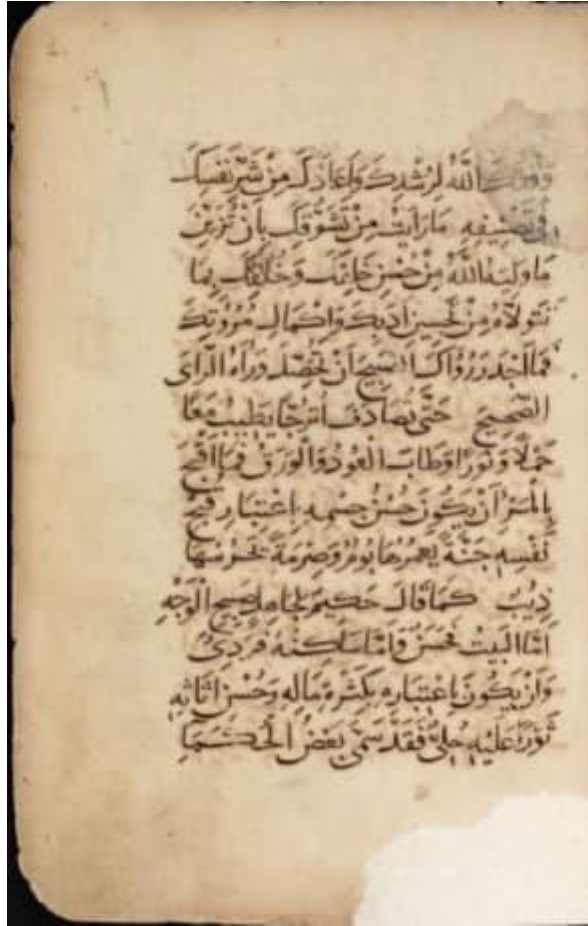 وَفَّقَكَ اللَّهُ لِرُشْدِكَ وَاَعَاذَكَ مِنْ شَرِّ نَفْسِكَ
فِي تَصْنِيفِهِ مَا رَاَيْتُ مِنْ تَشَوُّقِكَ بِاَنْ تُزَيِّنَ
مَا وَلِيَهُ اللَّهُ مِنْ حُسْنِ خَلْقِكَ وَخُلُقِكَ بِمَا
تَتَوَلَّاهُ مِنْ تَحْسِينِ اَدَبِكَ وَاِكْمَالِ مُرُوَّتِكَ
فَمَا اَجْدَرَ رُوَاكَ الصَّبِيحَ اَنْ تُحَصِّلَ وَرَاءَهُ الرَّاىَ
الصَّحِيحَ حَتَّى تُصَادِفَ اُتْرُجًّا يَطِيبُ مَعًا
حَمْلًا وَنَوْرًا وَطَابَ الْعُودُ وَالْوَرَقُ فَمَا اَقْبَحَ
بِالْمَرْءِ اَنْ يَكُونَ حُسْنُ جِسْمِهِ بِاِعْتِبَارِ قُبْحِ
نَفْسِهِ جَنَّةً يَعْمُرُهَا بُومٌ وَصِرْمَةً يَحْرُسُهَا
ذِيبٌ كَمَا قَالَ حَكِيمٌ لِجَاهِلٍ صَبِيحِ الْوَجْهِ
اَمَّا الْبَيْتُ فَحَسَنٌ وَاَمَّا سَاكِنُهُ فَرَدِىٌّ
وَاَنْ يَكُونَ بِاِعْتِبَارِهِ بِكَثْرَةِ مَالِهِ وَحُسْنِ اَثَاثِهِ
ثَوْرًا عَلَيْهِ حُلِىٌّ فَقَدْ سَمَّى بَعْضُ الْحُكَمَا